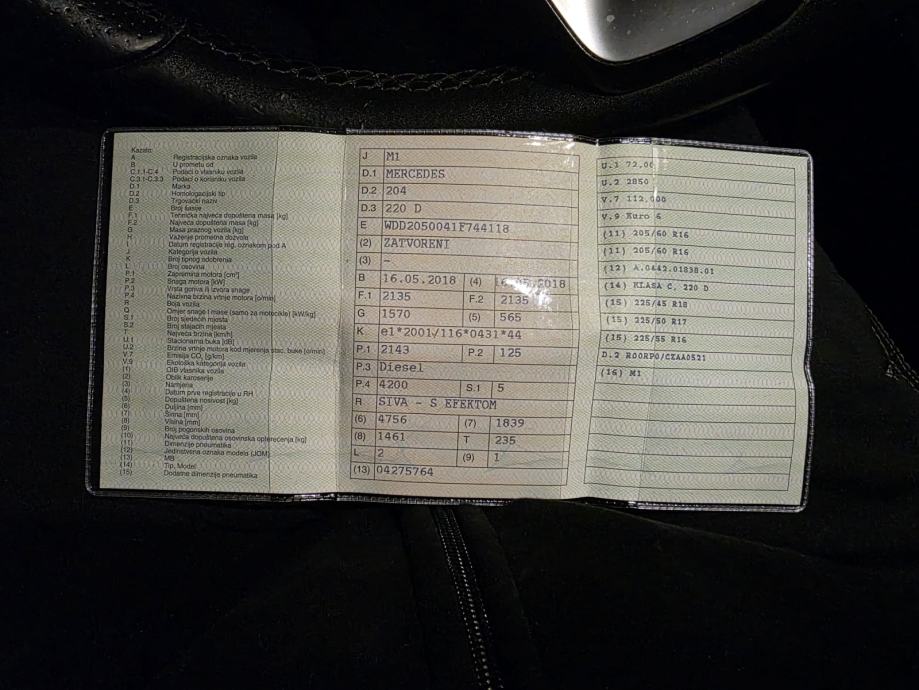 Kazalo:
A Registracijska oznaka vozila
B U prometu od
C.1.1-C.4 Podaci o vlasniku vozila
C.3.1-C.3.3 Podaci o korisniku vozila
D.1 Marka
D.2 Homologacijski tip
D.3 Trgovački naziv
E Broj šasije
F.1 Tehnička najveća dopuštena masa [kg]
F.2 Najveća dopuštena masa [kg]
G Masa praznog vozila [kg]
H Važenje prometne dozvole
I Datum registracije reg. oznakom pod A
J Kategorija vozila
K Broj tipnog odobrenja
L Broj osovina
P.1 Zapremina motora [cm³]
P.2 Snaga motora [kW]
P.3 Vrsta goriva ili izvora snage
P.4 Nazivna brzina vrtnje motora [o/min]
R Boja vozila
Q Omjer snage i mase (samo za motocikle) [kW/kg]
S.1 Broj sjedećih mjesta
S.2 Broj stajaćih mjesta
T Najveća brzina [km/h]
U.1 Stacionarna buka [dB]
U.2 Brzina vrtnje motora kod mjerenja stac. buke [o/min]
V.7 Emisija CO₂ [g/km]
V.9 Ekološka kategorija vozila
(1) OIB vlasnika vozila
(2) Oblik karoserije
(3) Namjena
(4) Datum prve registracije u RH
(5) Dopuštena nosivost [kg]
(6) Duljina [mm]
(7) Širina [mm]
(8) Visina [mm]
(9) Broj pogonskih osovina
(10) Najveća dopuštena osovinska opterećenja [kg]
(11) Dimenzije pneumatika
(12) Jedinstvena oznaka modela (JOM)
(13) MB
(14) Tip, Model
(15) Dodatne dimenzije pneumatika
J M1
D.1 MERCEDES
D.2 204
D.3 220 D
E WDD2050041F744118
(2) ZATVORENI
(3) –
B 16.05.2018 (4) 16.05.2018
F.1 2135 F.2 2135
G 1570 (5) 565
K e1*2001/116*0431*44
P.1 2143 P.2 125
P.3 Diesel
P.4 4200 S.1 5
R SIVA - S EFEKTOM
(6) 4756 (7) 1839
(8) 1461 T 235
L 2 (9) 1
(13) 04275764
U.1 72.00
U.2 2850
V.7 112,000
V.9 Euro 6
(11) 205/60 R16
(11) 205/60 R16
(12) A.0442.01838.01
(14) KLASA C, 220 D
(15) 225/45 R18
(15) 225/50 R17
(15) 225/55 R16
D.2 R00RP0/CZAA0521
(16) M1